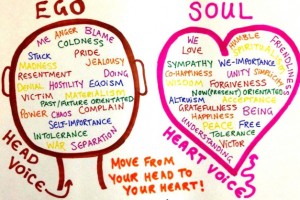 EGO
ME ANGER BLAME
COLDNESS
STUCK PRIDE
MADNESS JEALOUSY
RESENTMENT DOING
DENIAL HOSTILITY EGOISM
VICTIM MATERIALISM
PAST/FUTURE ORIENTATED
POWER CHAOS COMPLAIN
SELF-IMPORTANCE
INTOLERANCE
WAR SEPARATION
HEAD VOICE
MOVE FROM
YOUR HEAD TO
YOUR HEART!
SOUL
WE HUMBLE FRIENDLINESS
LOVE SPIRITUAL
SYMPATHY WE-IMPORTANCE
CO-HAPPINESS UNITY SIMPLICITY
WISDOM FORGIVENESS
NOW(PRESENT) ORIENTATED
ALTRUISM ACCEPTANCE
GRATEFULNESS
HAPPINESS BEING
PEACE FREE
UNDERSTANDING TOLERANCE
VICTOR
HEART VOICE